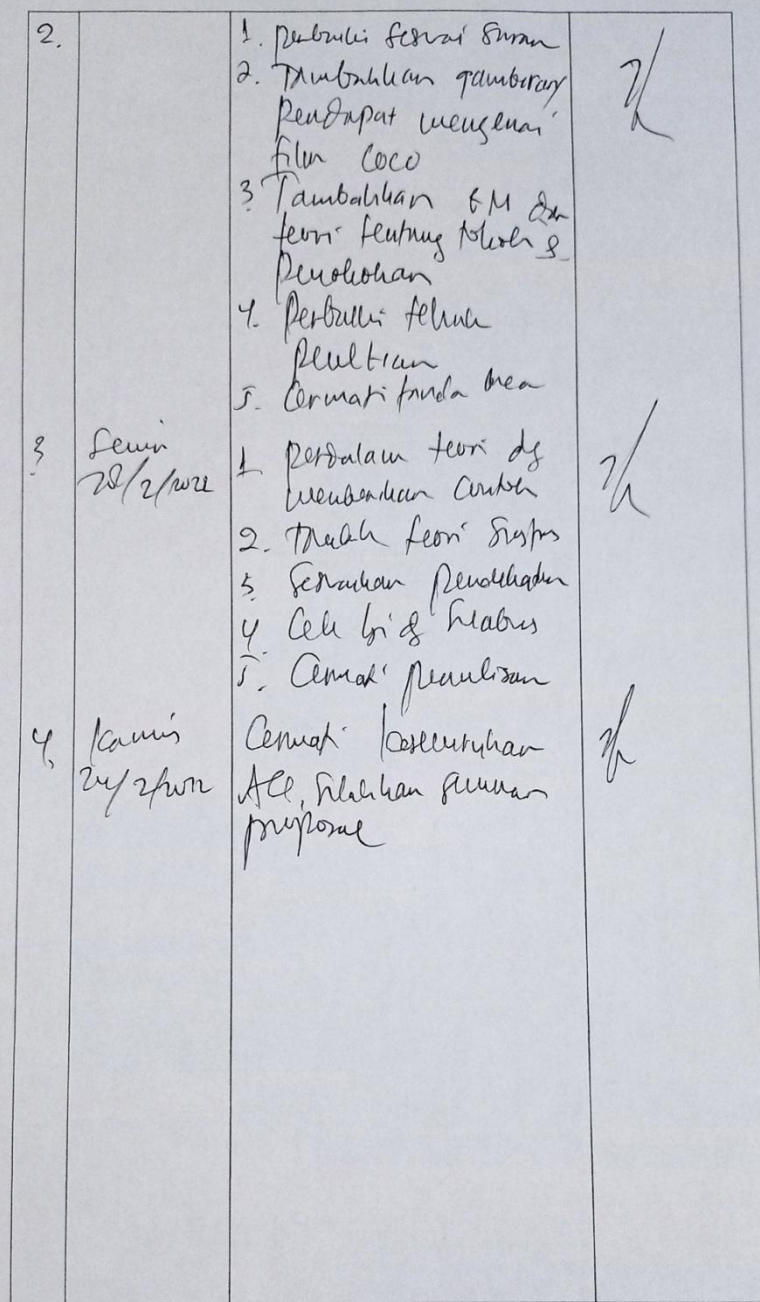 2.
1. perbaiki sesuai saran
2. Tambahkan gambaran
pendapat mengenai
film Coco
3 Tambahkan dan
teori tentang tokoh &
penokohan
4. Perbaiki teknik
penelitian
5. Cermati tanda baca
3 Senin
28/2/2022
1. perdalam teori dg
memberikan contoh
2. teori
3 Sesuaikan pendekatan
4 Cek dg silabus
5. Cermati penulisan
4. Kamis
24/2/2022
Cermati keseluruhan
ACC, silahkan seminar
proposal